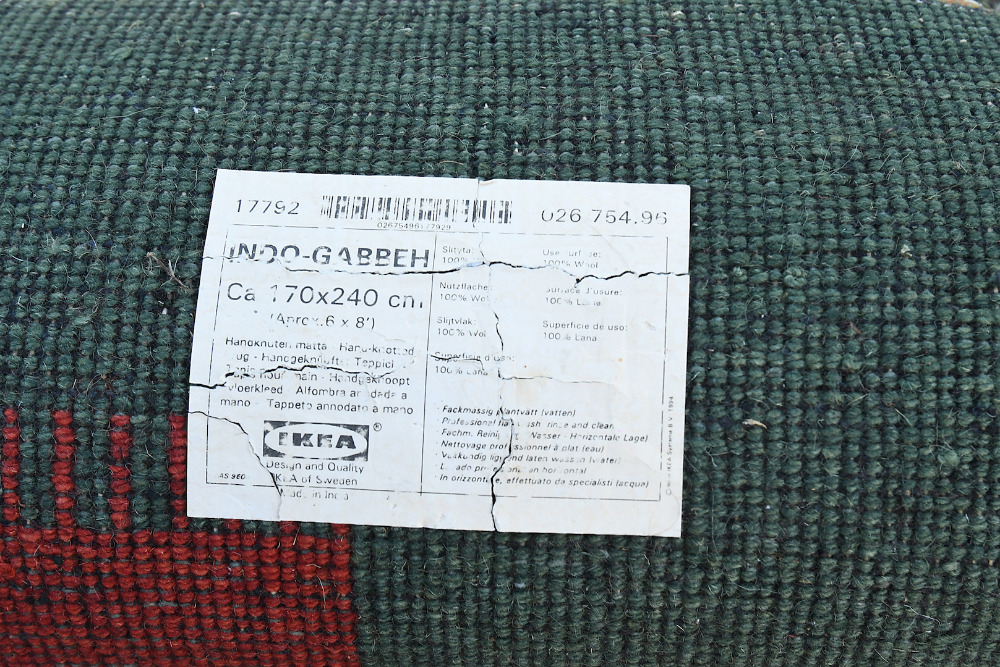 17792
026 754.96
026754961 77929
INDO-GABBEH
Ca 170x240 cm
(Aprox.6 x 8')
Handknuten matta - Hand-knotted
- Handgeknüpfter Teppich
main - Handgeknoopt
vloerkleed - Alfombra anudada a
mano - Tappeto annodato a mano
IKEA ®
Design and Quality
IKEA of Sweden
Made in India
AS 960
Slityta:
100%
Nutzfläche:
100% Wolle
Slijtvlak:
100% Wol
Superficie d'uso:
100% Lana
Use surface:
100% Wool
Surface d'usure:
100% Laine
Superficie de uso:
100% Lana
· Fackmässig plantvätt (vatten)
· Professional flat wash, rinse and clean
· Fachm. Reinig. Wasser - Horizontale Lage)
· Nettoyage professionnel à plat (eau)
· Vakkundig liggend laten wassen (water)
· Lavado en horizontal
· In orizzontale, effettuato da specialisti (acqua)
IKEA Systems B.V. 1994